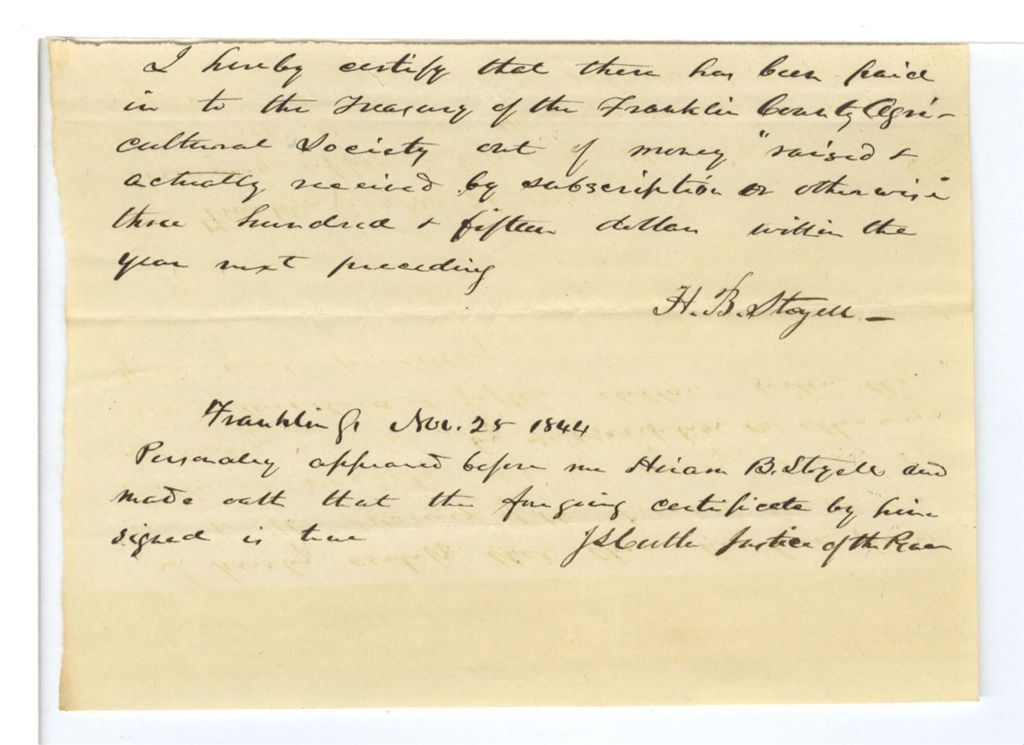 I hereby certify that there has been paid
in to the Treasury of the Franklin County Agri-
cultural Society out of money "raised &
actually received by subscription or otherwise"
three hundred & fifteen dollars within the
year next preceding
H. B. Stoyell
Franklin Ss Nov. 25 1844
Personaley appeared before me Hiram B. Stoyell and
made oath that the foregoing certificate by him
signed is true
Justice of the Peace